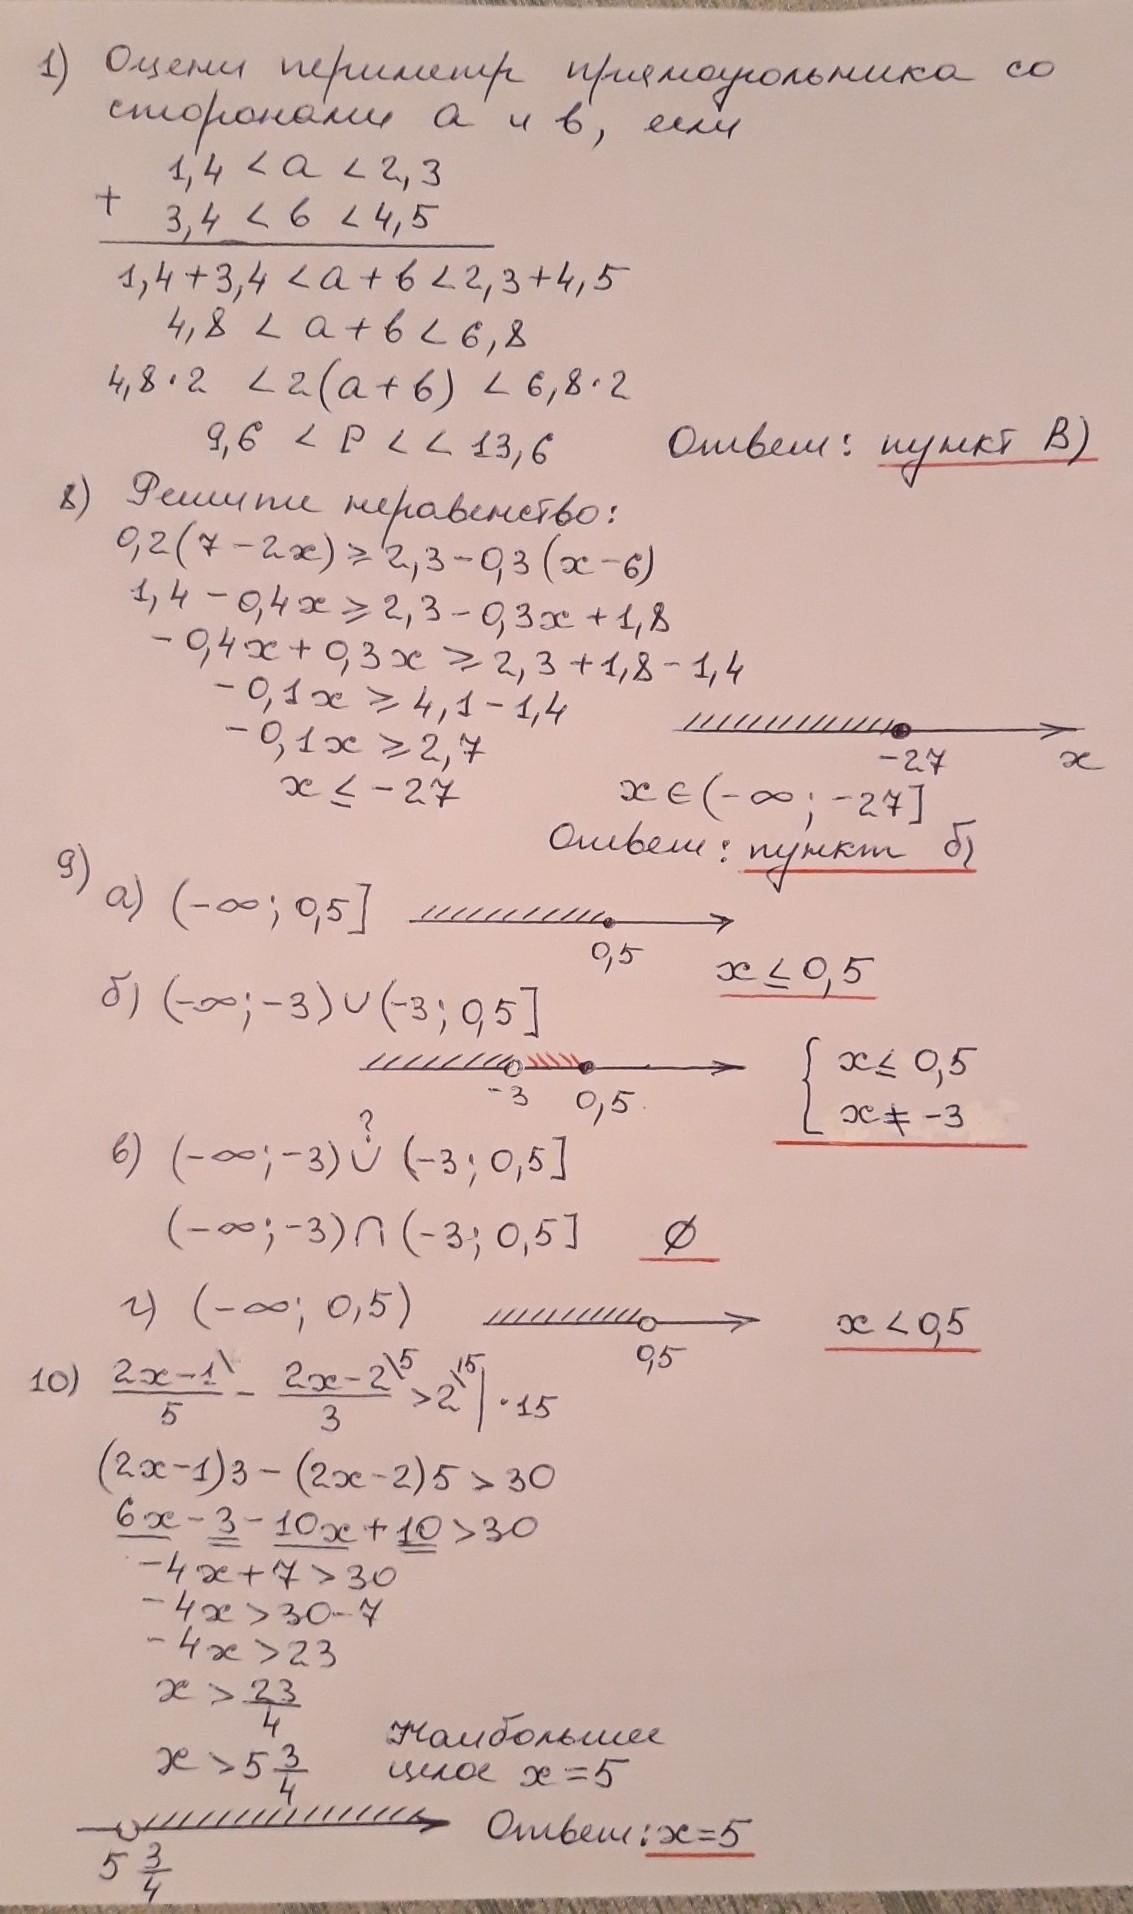 1) Оцени периметр прямоугольника со
сторонами а и в, если
1,4 < а < 2,3
+ 3,4 < в < 4,5
1,4+3,4 < а + в < 2,3+4,5
4,8 < а + в < 6,8
4,8·2 < 2(а + в) < 6,8·2
9,6 < Р < < 13,6 Ответ: пункт В)
8) Решите неравенство:
0,2(7-2x) ⩾ 2,3-0,3(x-6)
1,4-0,4x ⩾ 2,3-0,3x+1,8
-0,4x+0,3x ⩾ 2,3+1,8-1,4
-0,1x ⩾ 4,1-1,4
-0,1x ⩾ 2,7
-27 x
x ≤ -27 x∈(-∞; -27]
Ответ: пункт б)
9) а) (-∞; 0,5]
0,5
x ≤ 0,5
б) (-∞; -3)∪(-3; 0,5]
-3 0,5
{ x ≤ 0,5
x ≠ -3
?
в) (-∞; -3) ∪ (-3; 0,5]
(-∞; -3)∩(-3; 0,5] ∅
г) (-∞; 0,5)
0,5
x < 0,5
10) (2x-1\)/5 - (2x-2\5)/3 > 2\15 | ·15
(2x-1)3-(2x-2)5 > 30
6x-3-10x+10 > 30
-4x+7 > 30
-4x > 30-7
-4x > 23
x > 23/4
x > 5 3/4
Наибольшее
целое x=5
5 3/4
Ответ: x=5